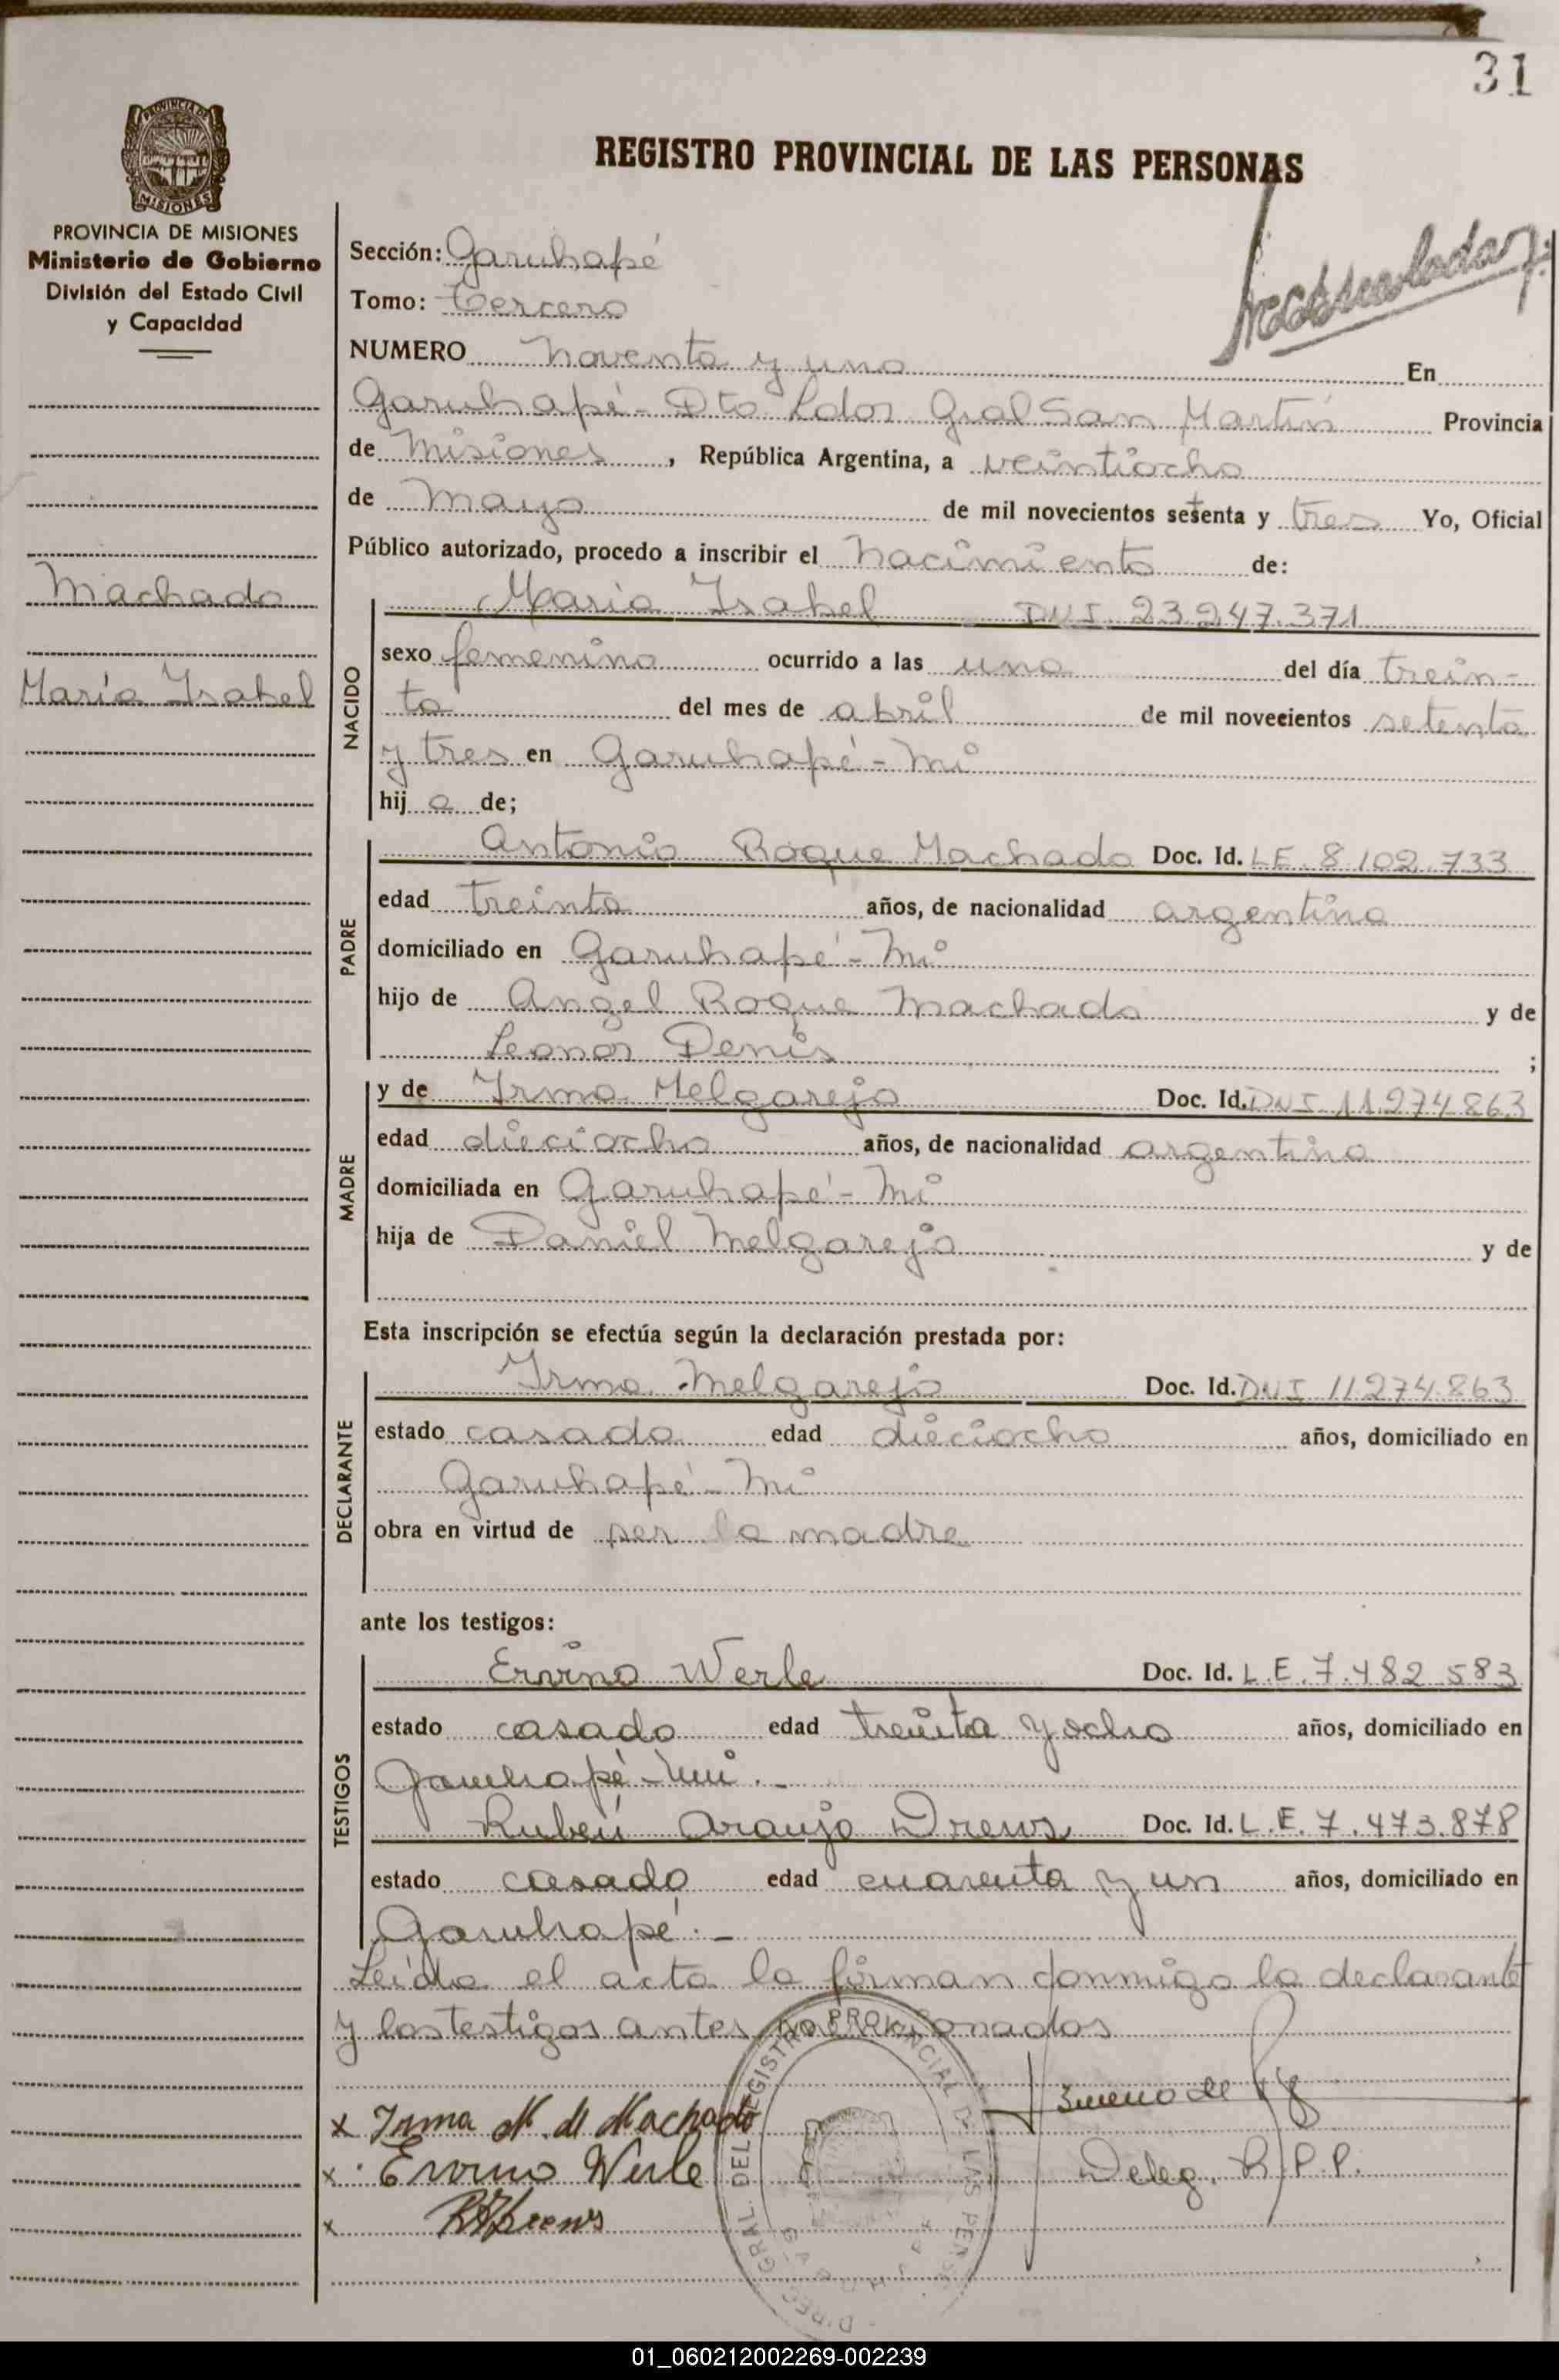 31
REGISTRO PROVINCIAL DE LAS PERSONAS
PROVINCIA DE MISIONES
MISIONES
PROVINCIA DE MISIONES
Ministerio de Gobierno
División del Estado Civil
y Capacidad
Machado
María Isabel
Sección: Garuhapé
Tomo: Tercero
NUMERO noventa y uno En
Garuhapé - Dto Ldor Gral San Martín Provincia
de Misiones, República Argentina, a veintiocho
de mayo de mil novecientos setenta y tres Yo, Oficial
Público autorizado, procedo a inscribir el nacimiento de:
NACIDO
María Isabel DNI 23.247.371
sexo femenino ocurrido a las una del día trein-
ta del mes de abril de mil novecientos setenta
y tres en Garuhapé - Mi
hij a de;
PADRE
Antonio Roque Machado Doc. Id. LE. 8.102.733
edad treinta años, de nacionalidad argentina
domiciliado en Garuhapé - Mi
hijo de Angel Roque Machado y de
Leonor Denis ;
MADRE
y de Irma Melgarejo Doc. Id. DNI 11.274.863
edad dieciocho años, de nacionalidad argentina
domiciliada en Garuhapé - Mi
hija de Daniel Melgarejo y de
Esta inscripción se efectúa según la declaración prestada por:
DECLARANTE
Irma Melgarejo Doc. Id. DNI 11.274.863
estado casada edad dieciocho años, domiciliado en
Garuhapé - Mi
obra en virtud de ser la madre
ante los testigos:
TESTIGOS
Ervino Werle Doc. Id. L.E. 7.482.583
estado casado edad treinta y ocho años, domiciliado en
Garuhapé - Mi. -
Rubén Araujo Drews Doc. Id. L.E. 7.473.878
estado casado edad cuarenta y un años, domiciliado en
Garuhapé. -
Leída el acta la firman conmigo la declarante
y los testigos antes mencionados
x Irma M. d Machado
x Ervino Werle
x RADrews
Deleg. R.P.P.
DIREC. GRAL. DEL REGISTRO PROVINCIAL DE LAS PERS.
01_060212002269-002239